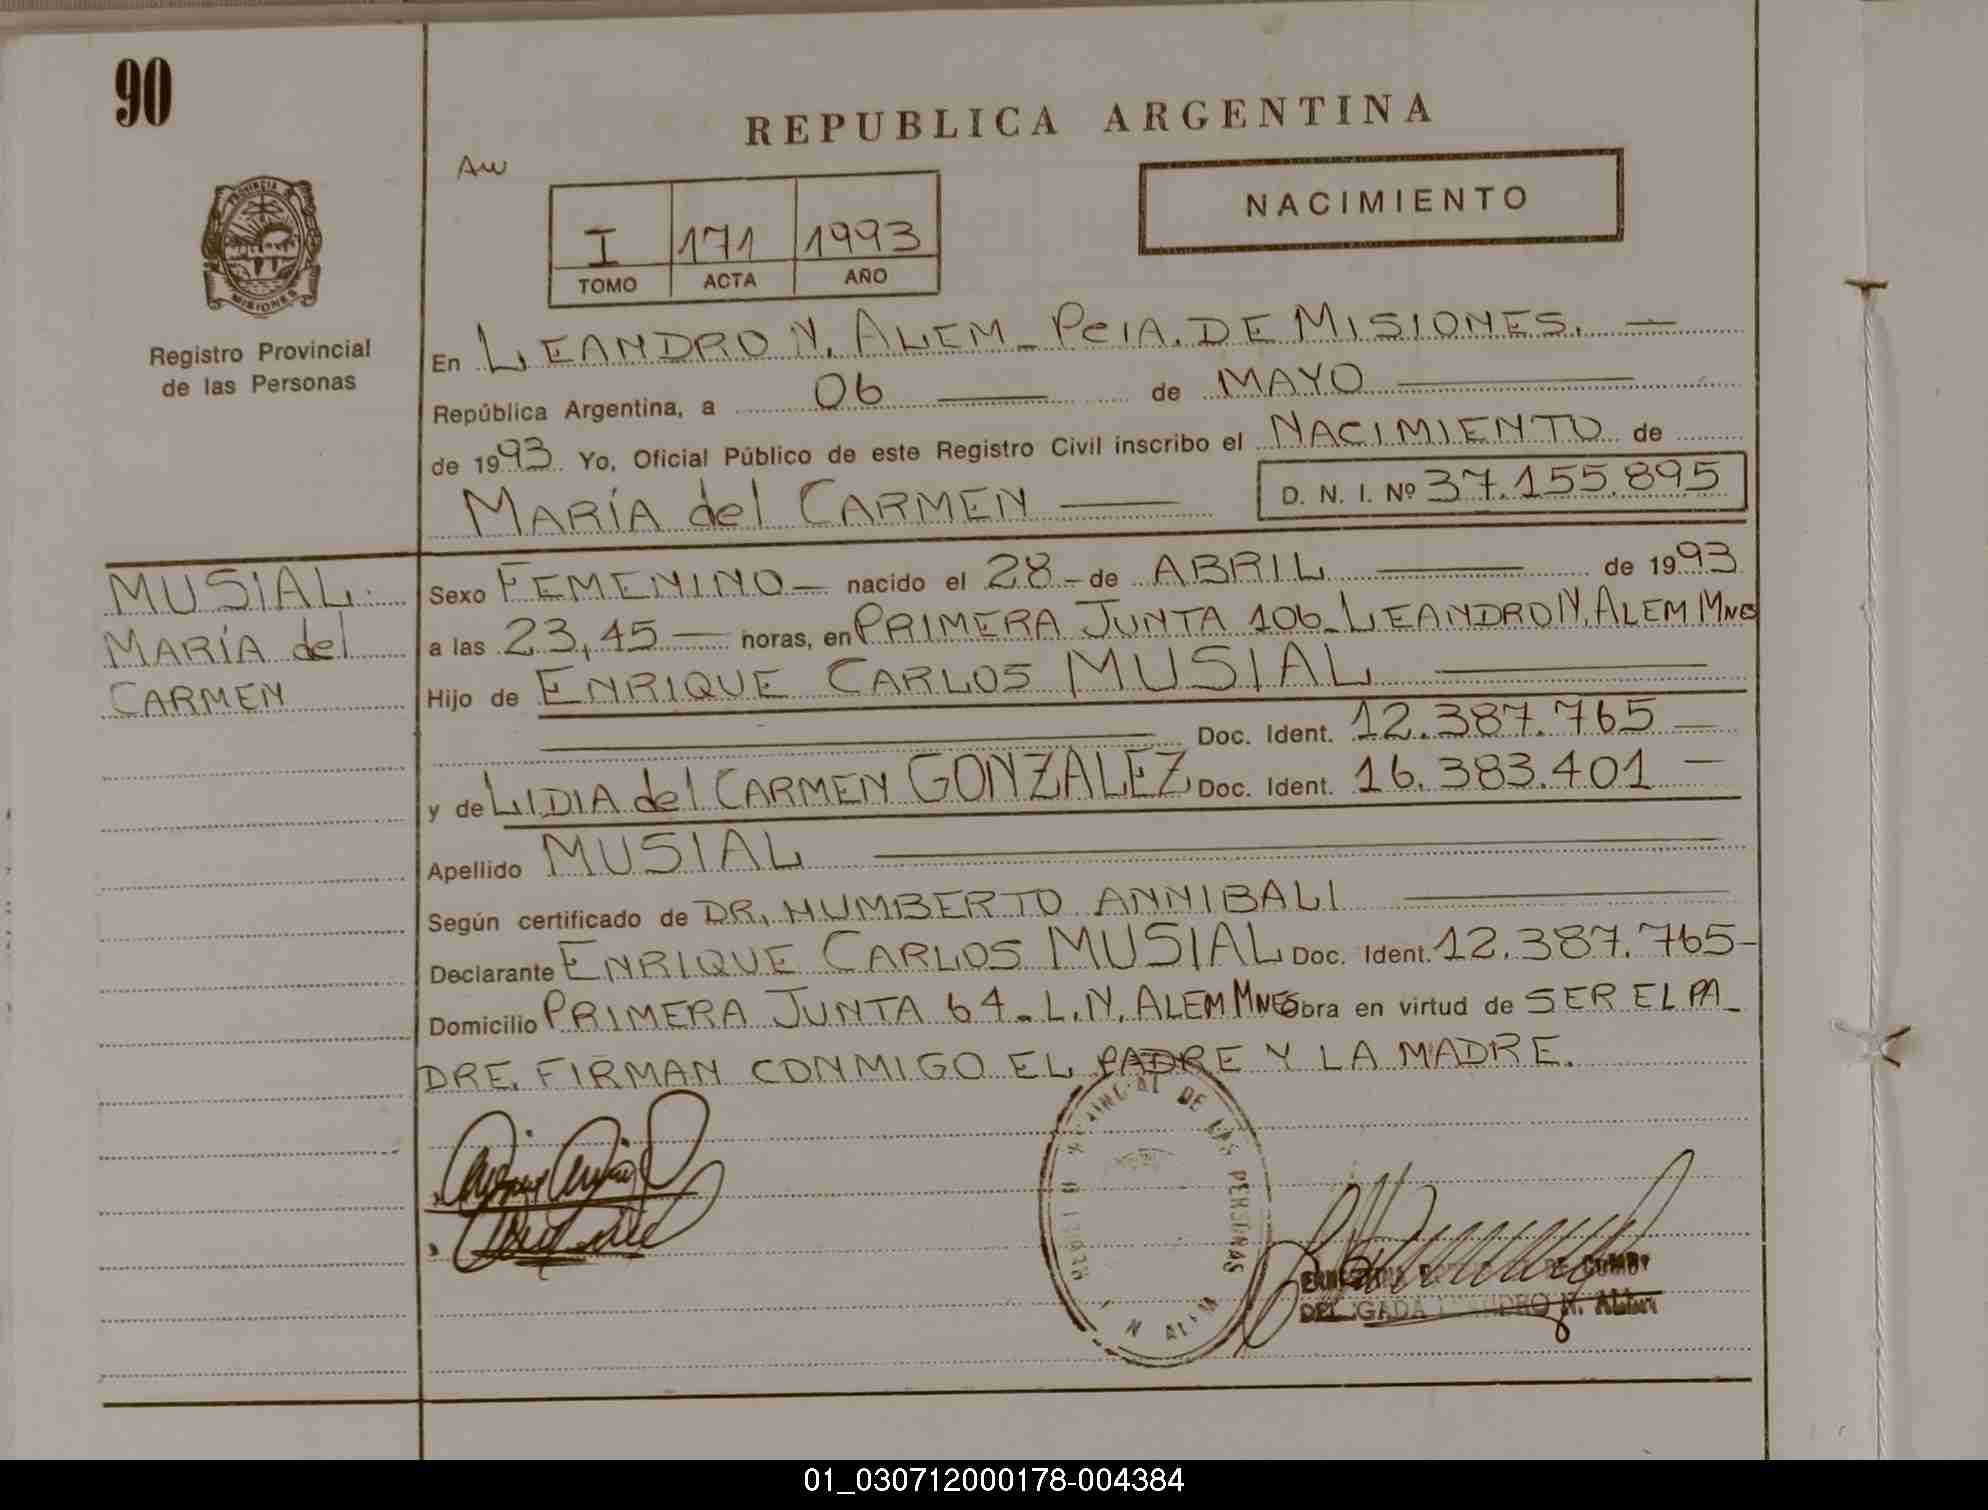 90
REPUBLICA ARGENTINA
Aw
NACIMIENTO
I 171 1993
TOMO ACTA AÑO
PROVINCIA
MISIONES
Registro Provincial
de las Personas
En LEANDRO N. ALEM - PCIA. DE MISIONES. —
República Argentina, a 06 — de MAYO —
de 1993 Yo, Oficial Público de este Registro Civil inscribo el NACIMIENTO de
MARÍA del CARMEN — D. N. I. Nº 37.155.895
MUSIAL.
MARÍA del
CARMEN
Sexo FEMENINO — nacido el 28 - de ABRIL — de 1993
a las 23,45 — horas, en PRIMERA JUNTA 106 - LEANDRO N. ALEM Mnes
Hijo de ENRIQUE CARLOS MUSIAL —
— Doc. Ident. 12.387.765 —
y de LIDIA del CARMEN GONZALEZ Doc. Ident. 16.383.401 —
Apellido MUSIAL —
Según certificado de DR. HUMBERTO ANNIBALI —
Declarante ENRIQUE CARLOS MUSIAL Doc. Ident. 12.387.765 -
Domicilio PRIMERA JUNTA 64 - L. N. ALEM Mnes obra en virtud de SER EL PA_
DRE. FIRMAN CONMIGO EL PADRE Y LA MADRE.
DE LAS PERSONAS
N ALEM
DE
LEANDRO N. ALEM
01_030712000178-004384